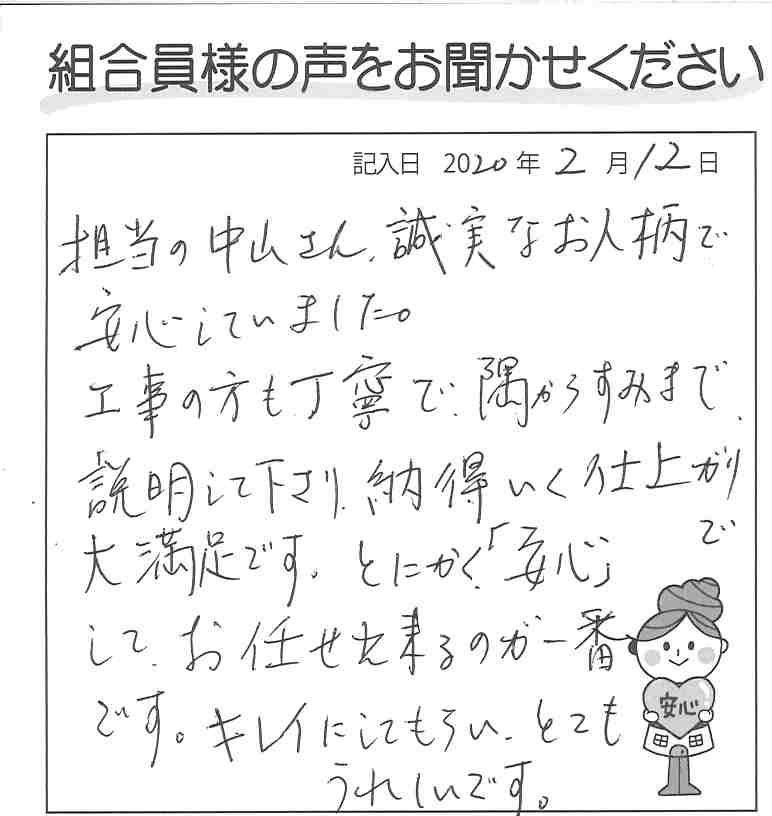 組合員様の声をお聞かせください
記入日 2020年2月12日
担当の中山さん、誠実なお人柄で
安心していました。
工事の方も丁寧で、隅からすみまで、
説明して下さり、納得いく仕上がりで
大満足です。とにかく、「安心」
して、お任せ出来るのが一番
です。キレイにしてもらい、とても
うれしいです。
安心